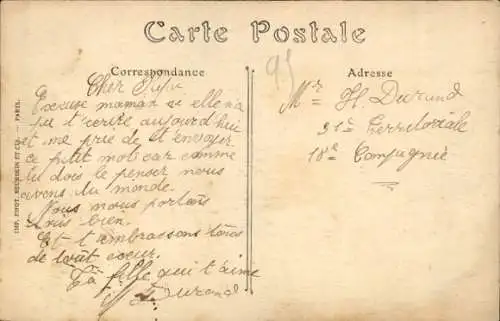 Carte Postale
Correspondance
Cher
Excuse maman si elle n'a
pu t'ecrire aujourd'hui
et me prie de t'envoyer
ce petit mot car comme
tu dois le penser nous
avons du monde.
Nous nous portons
très bien.
Et t'embrassons tous
de tout coeur.
Ta fille qui t'aime
Durand
95
Adresse
Mr H. Durand
31e Territoriale
18e Compagnie
IMP. PHOT. NEURDEIN ET CIE. — PARIS.